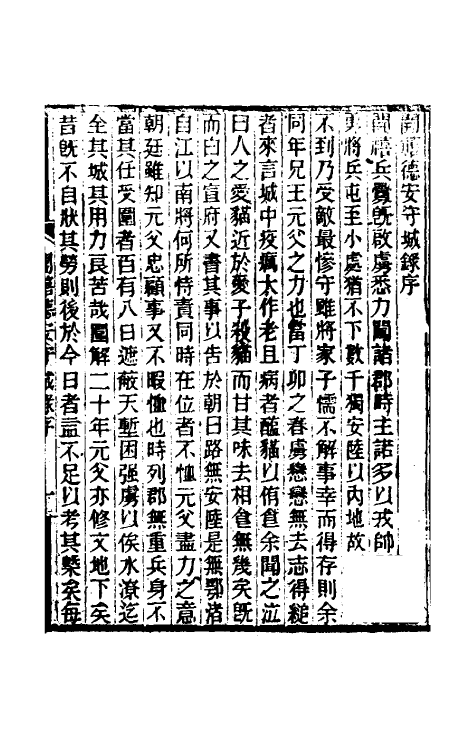 開禧德安守城錄序
開禧兵釁旣啟虜悉力闖諸郡時主諾多以戎帥
將兵屯至小處猶不下數千獨安陸以內地故
不到乃受敵最慘守雖將家子懦不解事幸而得存則余
同年兄王元父之力也當丁卯之春虜戀戀無去志得縋
者來言城中疫癘大作老且病者醢貓以侑食余聞之泣
曰人之愛貓近於愛子殺貓而甘其味去相食無幾矣旣
而白之宣府又書其事以告於朝曰路無安陸是無鄂渚
自江以南將何所恃責同時在位者不恤元父盡力之意
朝廷雖知元父忠顧事又不暇恤也時列郡無重兵身不
當其任受圍者百有八日遮蔽天塹困强虜以俟水潦迄
全其城其用力良苦哉圍解二十年元父亦修文地下矣
昔旣不自狀其勞則後於今日者諒不足以考其槩矣每
開禧德安守城錄序